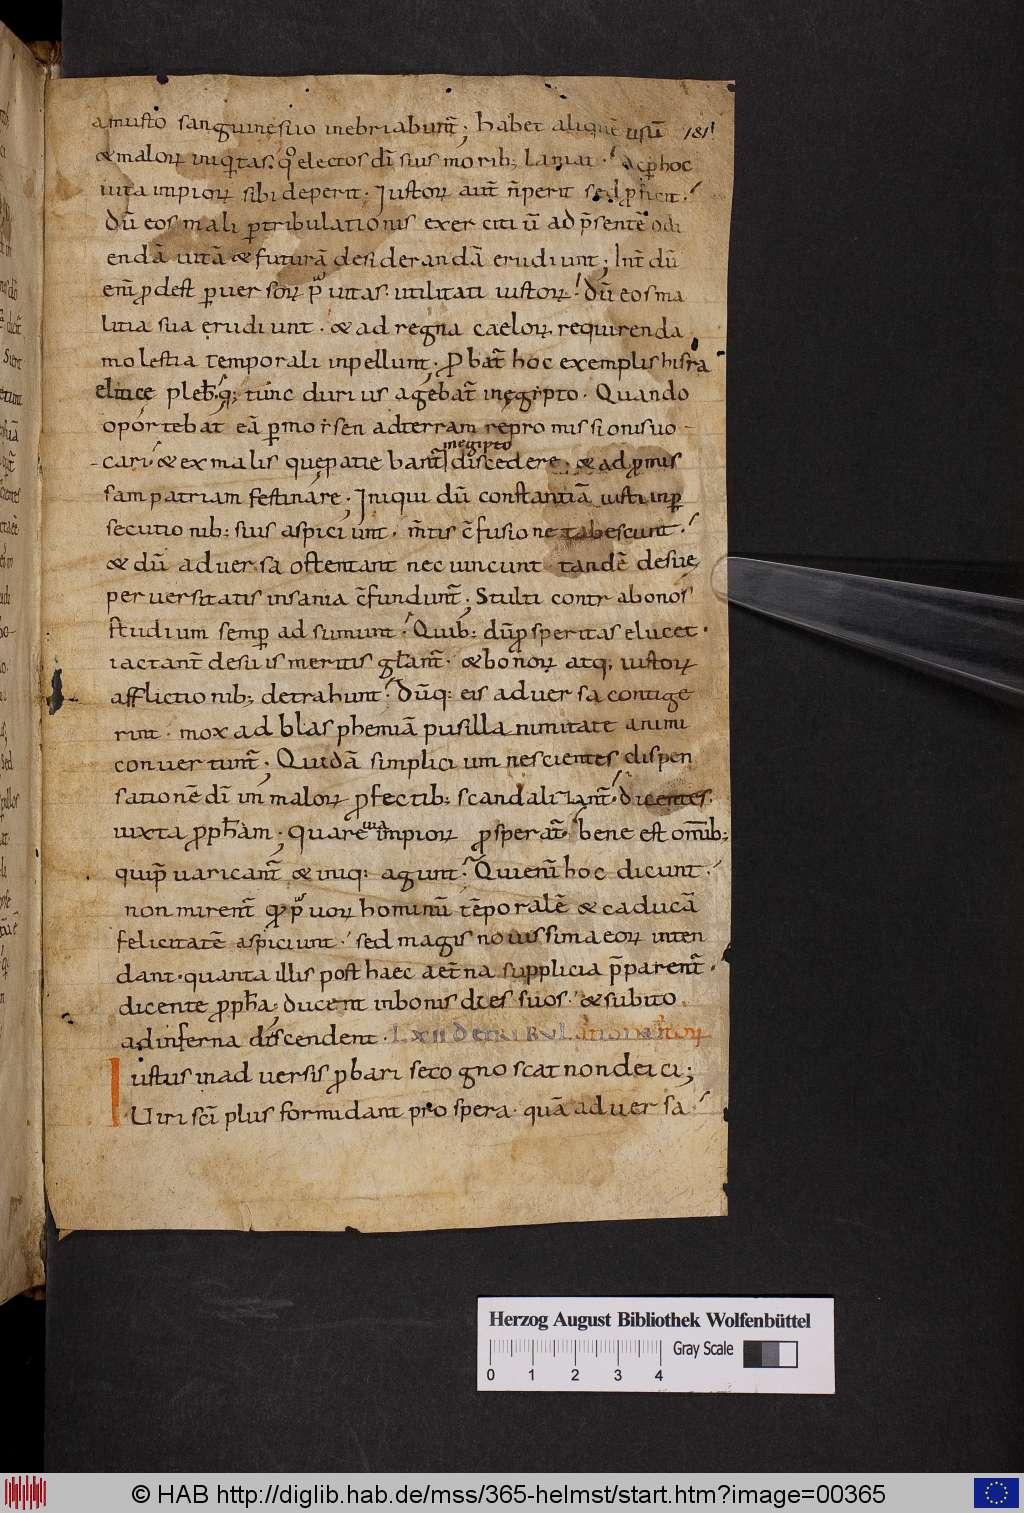 a musto sanguine suo inebriabunt̃; habet aliquē usū 181
& malorꝝ iniq̇tas. qͦ electos dī suis morib; laniat. Ac ꝑ hoc
iuita impiorꝝ sibi deperit; Justorꝝ aut̃ ñ perit sed ꝓficit.
dū eos mali ꝑ tribulationis exercitiū ad p̃sentē odi
endā uitā & futurā desiderandā erudiunt; Int̃dū
enī ꝓdest peruersorꝝ prauitas utilitati iustorꝝ. dū eos ma
litia sua erudiunt. & ad regna caelorꝝ requirenda
molestia temporali inpellunt; Probat̃ hoc exemplis hisra
elitice pleb̃. q; tunc durius agebat̃ in egipto. Quando
oportebat eā ꝑ mo r̃sen ad terram repromissionis uo
in egipto
cari. & ex malis que patiebant̃ discedere. & ad ꝓmis
sam patriam festinare; Iniqui dū constantiā iusti in ꝑ
secutionib; suis aspiciunt. m̃tis c̃fusione tabescunt.
& dū aduersa ostentant nec uincunt. tandē de sue
peruersitatis insania c̃fundunt̃; Stulti contra bonos
studium semꝑ adsumunt. Quib; dū ꝓsperitas elucet.
iactant̃ de suis meritis gl̃ant̃. & bonorꝝ atq; iustorꝝ
afflictionib; detrahunt. Dūq; eis aduersa contige
rint. mox ad blasphemiā pusillanimitate animi
conuertunt̃; Quidā simplicium nescientes dispen
sationē dī in malorꝝ ꝓfectib; scandalizant̃. dicentes.
iuxta ꝓph̃am; Quare uia impiorꝝ ꝓsperat̃. bene est om̃ib;
qui p̃uaricant̃ & iniq; agunt. Qui enī hoc dicunt.
non mirent̃ qd̃ prauorꝝ hominū tēporalē & caducā
felicitatē aspiciunt. sed magis nouissima eorꝝ inten
dant. quanta illis post haec aet̃na supplicia p̃parent̃.
dicente ꝓph̃a; ducent in bonis dies suos. & subito
ad inferna discendent. LXII DE TRIBULationa iustorꝝ
Iustus in aduersis ꝓbari se cognoscat non deici;
Uiri sc̃i plus formidant prospera. quā aduersa.
Herzog August Bibliothek Wolfenbüttel
Gray Scale
0 1 2 3 4
© HAB http://diglib.hab.de/mss/365-helmst/start.htm?image=00365